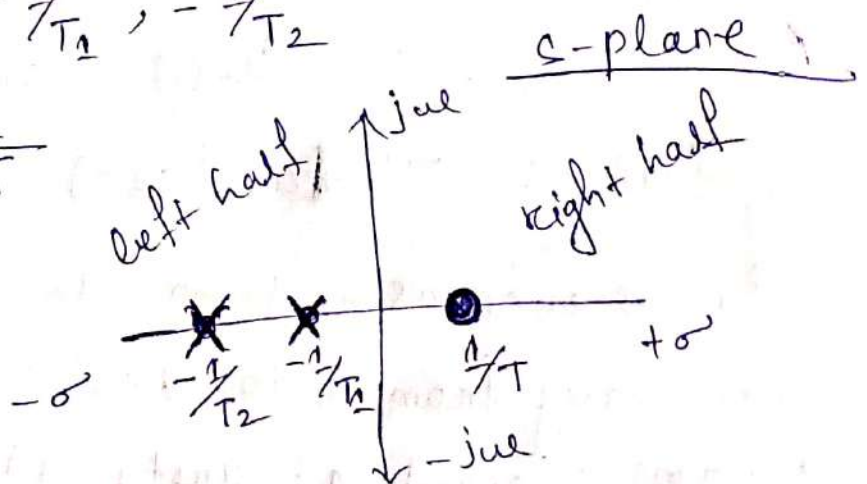 1/T1 , - 1/T2
s-plane
jω
left half
right half
-σ
-1/T2
-1/T1
1/T
+σ
-jω